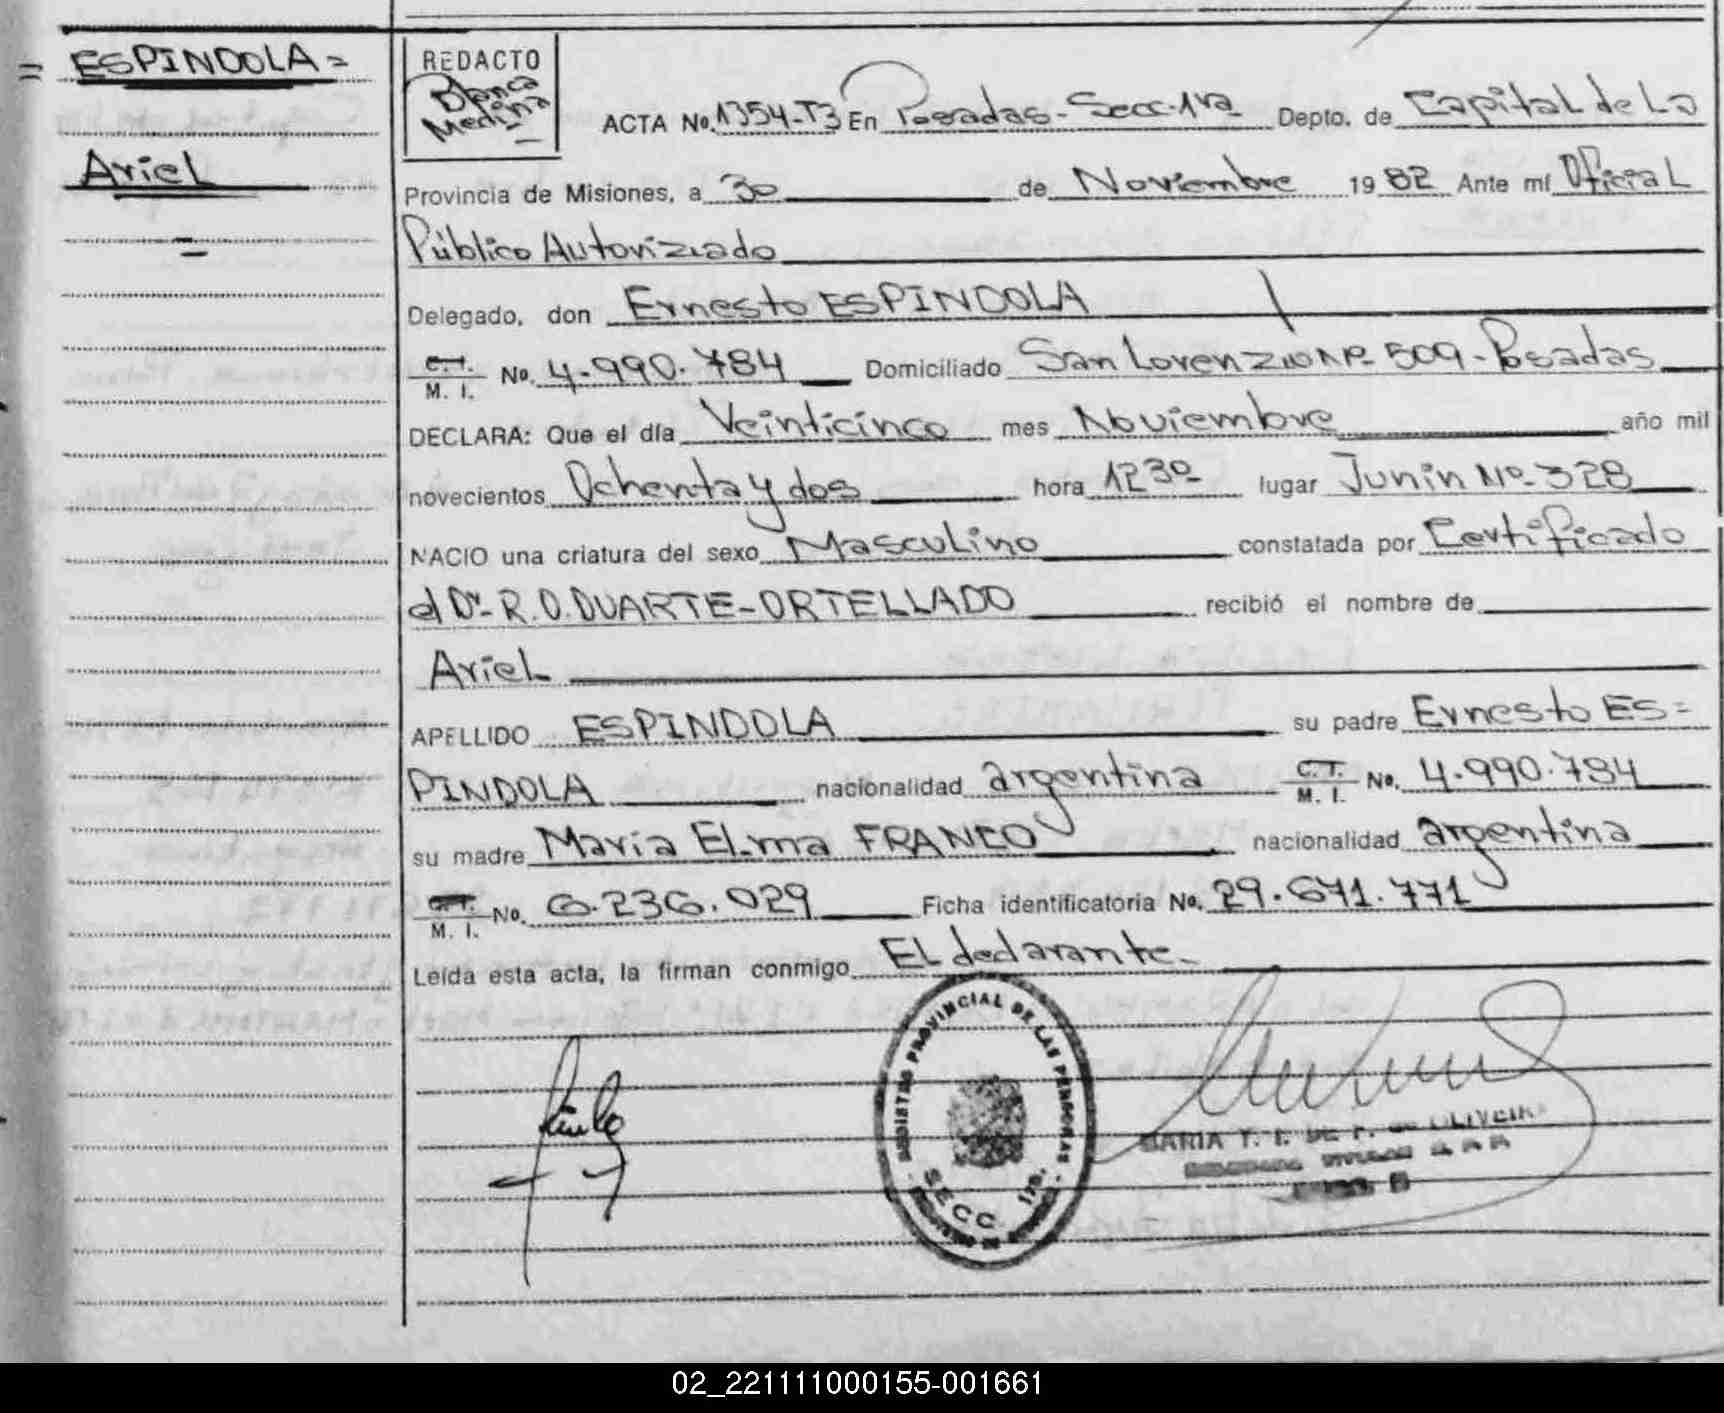 = ESPINDOLA =
Ariel
=
REDACTO
Blanca
Medina
ACTA No. 1354-T3 En Posadas - Secc. 1ra Depto. de Capital de La
Provincia de Misiones, a 30 de Noviembre 19 82 Ante mí Oficial
Público Autoriziado
Delegado, don Ernesto ESPINDOLA
C.I. M. I. No. 4.990.784 Domiciliado San Lorenzo Nº 509 - Posadas
DECLARA: Que el día Veinticinco mes Noviembre año mil
novecientos Ochenta y dos hora 1230 lugar Junin Nº 328
NACIO una criatura del sexo Masculino constatada por Certificado
d Dr. R.O. DUARTE-ORTELLADO recibió el nombre de
Ariel
APELLIDO ESPINDOLA su padre Ernesto ES=
PINDOLA nacionalidad argentina C.I. M. I. No. 4.990.784
su madre María Elma FRANCO nacionalidad argentina
C.I. M. I. No. 6.236.029 Ficha identificatoria No. 29.671.771
Leída esta acta, la firman conmigo El declarante.
REGISTRO PROVINCIAL DE LAS PERSONAS
SECC. 1ra.
MARIA T. DE OLIVEIRA
02_221111000155-001661